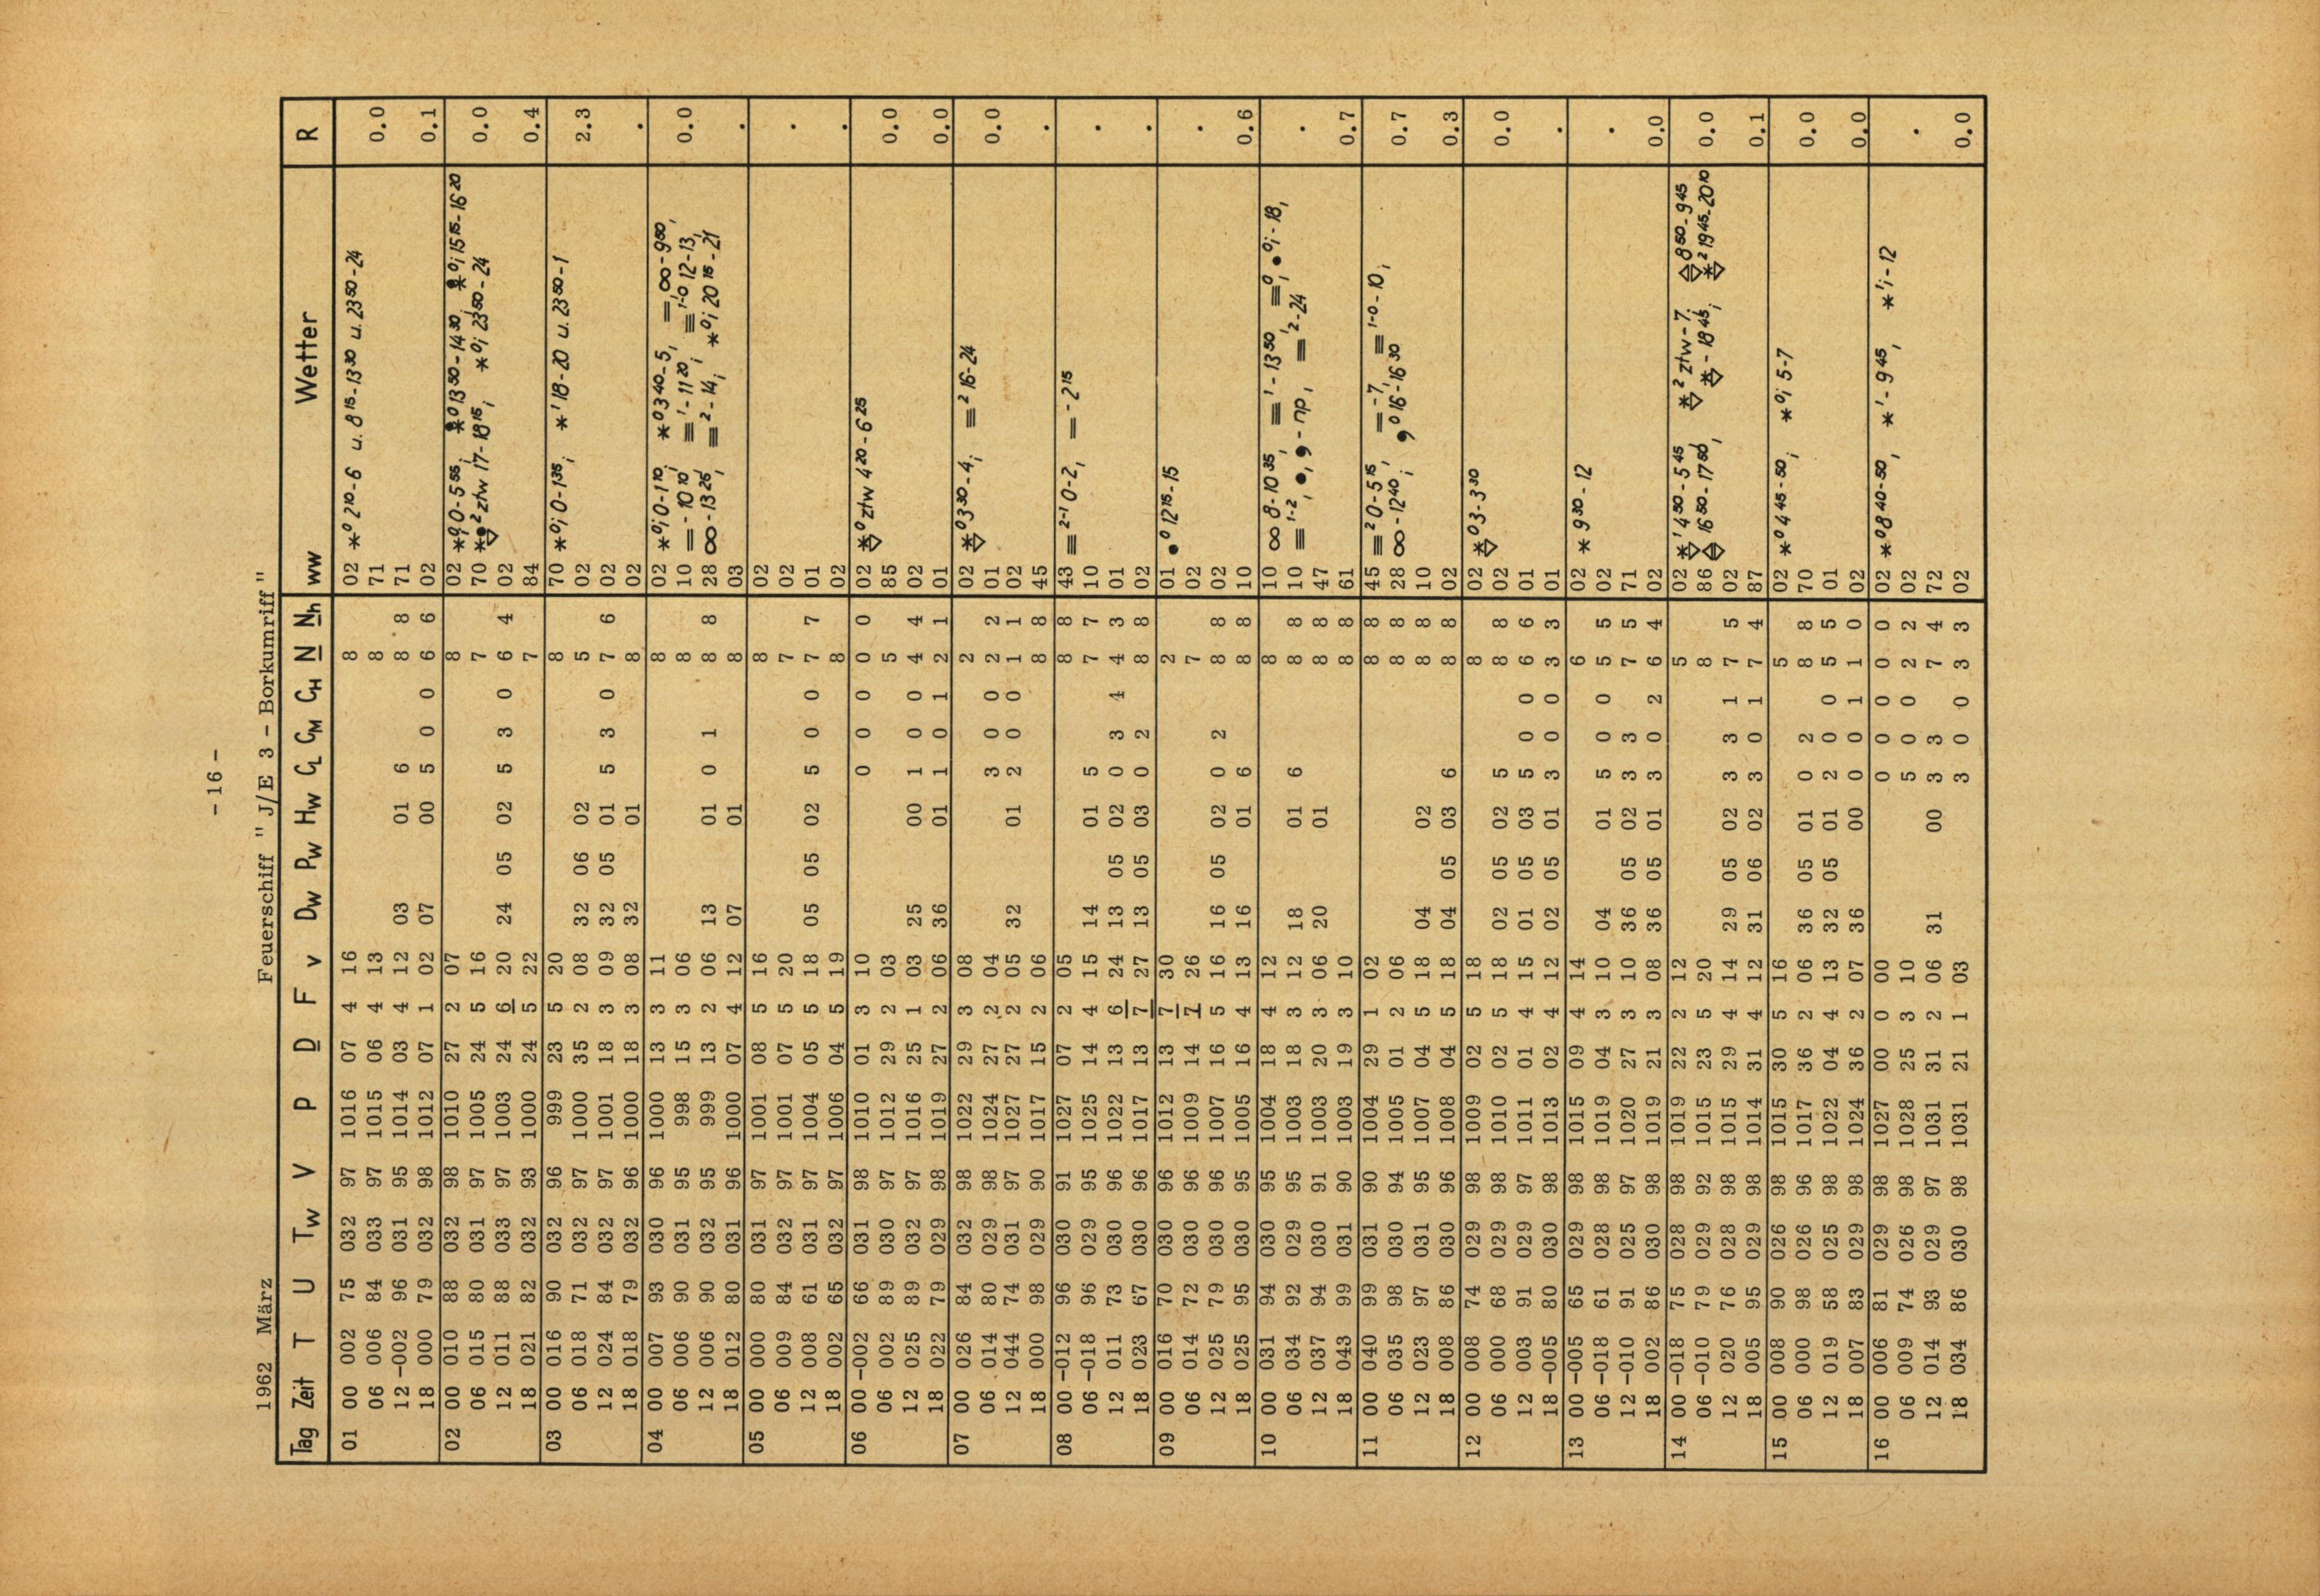 - 16 -
Feuerschiff " J/E 3 - Borkumriff "
1962 März
Tag Zeit T U Tw V P D F v Dw Pw Hw CL CM CH N Nh ww Wetter R
01 00 002 75 032 97 1016 07 4 16 8 02 *⁰ 2¹⁰-6 u. 8¹⁵-13³⁰ u. 23⁵⁰-24
06 006 84 033 97 1015 06 4 13 8 71 0.0
12 -002 96 031 95 1014 03 4 12 03 01 6 8 8 71
18 000 79 032 98 1012 07 1 02 07 00 5 0 0 6 6 02 0.1
02 00 010 88 032 98 1010 27 2 07 8 02 0-5⁵⁵; 13⁵⁰-14³⁰, 15¹⁵-16²⁰
06 015 80 031 97 1005 24 5 16 7 70 ztw 17-18¹⁵; *⁰; 23⁵⁰-24 0.0
12 011 88 033 97 1003 24 6 20 24 05 02 5 3 0 6 4 02
18 021 82 032 93 1000 24 5 22 7 84 0.4
03 00 016 90 032 96 999 23 5 20 8 70 *⁰; 0-1³⁵; *' 18-20 u. 23⁵⁰-1
06 018 71 032 97 1000 35 2 08 32 06 02 5 02 2.3
12 024 84 032 97 1001 18 3 09 32 05 01 5 3 0 7 6 02
18 018 79 032 96 1000 18 3 08 32 01 8 02 .
04 00 007 93 030 96 1000 13 3 11 8 02 *⁰; 0-1¹⁰; *⁰ 3⁴⁰-5, =, ∞-9⁵⁰,
06 006 90 031 95 998 15 3 06 8 10 =-10¹⁰, ≡'-11²⁰; ≡¹⁻⁰ 12-13, 0.0
12 006 90 032 95 999 13 2 06 13 01 0 1 8 8 28 ∞-13²⁵, ≡²-14; *⁰; 20¹⁵-21
18 012 80 031 96 1000 07 4 12 07 01 8 03 .
05 00 000 80 031 97 1001 08 5 16 8 02
06 009 84 032 97 1001 07 5 20 7 02 .
12 008 61 031 97 1004 05 5 18 05 05 02 5 0 0 7 7 01
18 002 65 032 97 1006 04 5 19 8 02 .
06 00 -002 66 031 98 1010 01 3 10 0 0 0 0 0 02 ztw 4²⁰-6²⁵
06 002 89 030 97 1012 29 2 03 5 85 0.0
12 025 89 032 97 1016 25 1 03 25 00 1 0 0 4 4 02
18 022 79 029 98 1019 27 2 06 36 01 1 0 1 2 1 01 0.0
07 00 026 84 032 98 1022 29 3 08 2 02 3³⁰-4; ≡² 16-24
06 014 80 029 98 1024 27 2 04 3 0 0 2 2 01 0.0
12 044 74 031 97 1027 27 2 05 32 01 2 0 0 1 1 02
18 000 98 029 90 1017 15 2 06 8 8 45 .
08 00 -012 96 030 91 1027 07 2 05 8 8 43 ≡²⁻¹ 0-2, =-2¹⁵
06 -018 96 029 95 1025 14 4 15 14 01 5 7 7 10 .
12 011 73 030 96 1022 13 6 24 13 05 02 0 3 4 4 3 01
18 023 67 030 96 1017 13 7 27 13 05 03 0 2 8 8 02 .
09 00 016 70 030 96 1012 13 7 30 2 01 ●⁰ 12¹⁵-15
06 014 72 030 96 1009 14 7 26 7 02 .
12 025 79 030 96 1007 16 5 16 16 05 02 0 2 8 8 02
18 025 95 030 95 1005 16 4 13 16 01 6 8 8 10 0.6
10 00 031 94 030 95 1004 18 4 12 8 10 ∞ 8-10³⁵, ≡'-13⁵⁰, ≡⁰, ●⁰;-18,
06 034 92 029 95 1003 18 3 12 18 01 6 8 8 10 ≡¹⁻², ●, 9-np, =' ²-24 .
12 037 94 030 91 1003 20 3 06 20 01 8 8 47
18 043 99 031 90 1003 19 3 10 8 8 61 0.7
11 00 040 99 031 90 1004 29 1 02 8 8 45 ≡² 0-5¹⁵, =-7, ≡¹⁻⁰-10;
06 035 98 030 94 1005 01 2 06 8 8 28 ∞-12⁴⁰; 16-16³⁰ 0.7
12 023 97 031 95 1007 04 5 18 04 02 8 8 10
18 008 86 030 96 1008 04 5 18 04 05 03 6 8 8 02 0.3
12 00 008 74 029 98 1009 02 5 18 8 02 3-3³⁰
06 000 68 029 98 1010 02 5 18 02 05 02 5 8 8 02 0.0
12 003 91 029 97 1011 01 4 15 01 05 03 5 0 0 6 6 01
18 -005 80 030 98 1013 02 4 12 02 05 01 3 0 0 3 3 01 .
13 00 -005 65 029 98 1015 09 4 14 6 02 * 9³⁰-12
06 -018 61 028 98 1019 04 3 10 04 01 5 0 0 5 5 02 .
12 -010 91 025 97 1020 27 3 10 36 05 02 3 3 7 5 71
18 002 86 030 98 1019 21 3 08 36 05 01 3 0 2 6 4 02 0.0
14 00 -018 75 028 98 1019 22 2 12 5 02 4⁵⁰-5⁴⁵ ztw-7; 8⁵⁰-9⁴⁵
06 -010 79 029 92 1015 23 5 20 8 86 16⁵⁰-17⁵⁰, -18⁴⁵; 19⁴⁵-20¹⁰ 0.0
12 020 76 028 98 1015 29 4 14 29 05 02 3 3 1 7 5 02
18 005 95 029 98 1014 31 4 12 31 06 02 3 0 1 7 4 87 0.1
15 00 008 90 026 98 1015 30 5 16 5 02 *⁰ 4⁴⁵-5⁰; *⁰; 5-7
06 000 98 026 96 1017 36 2 06 36 05 01 0 2 8 8 70 0.0
12 019 58 025 98 1022 04 4 13 32 05 01 2 0 0 5 5 01
18 007 83 029 98 1024 36 2 07 36 00 0 0 1 1 0 02 0.0
16 00 006 81 029 98 1027 00 0 00 0 0 0 0 0 02 *⁰ 8⁴⁰-50, *'-9⁴⁵, *';-12
06 009 74 026 98 1028 25 3 10 5 0 0 2 2 02 .
12 014 93 029 97 1031 31 2 06 31 00 3 3 7 4 72
18 034 86 030 98 1031 21 1 03 3 0 0 3 3 02 0.0